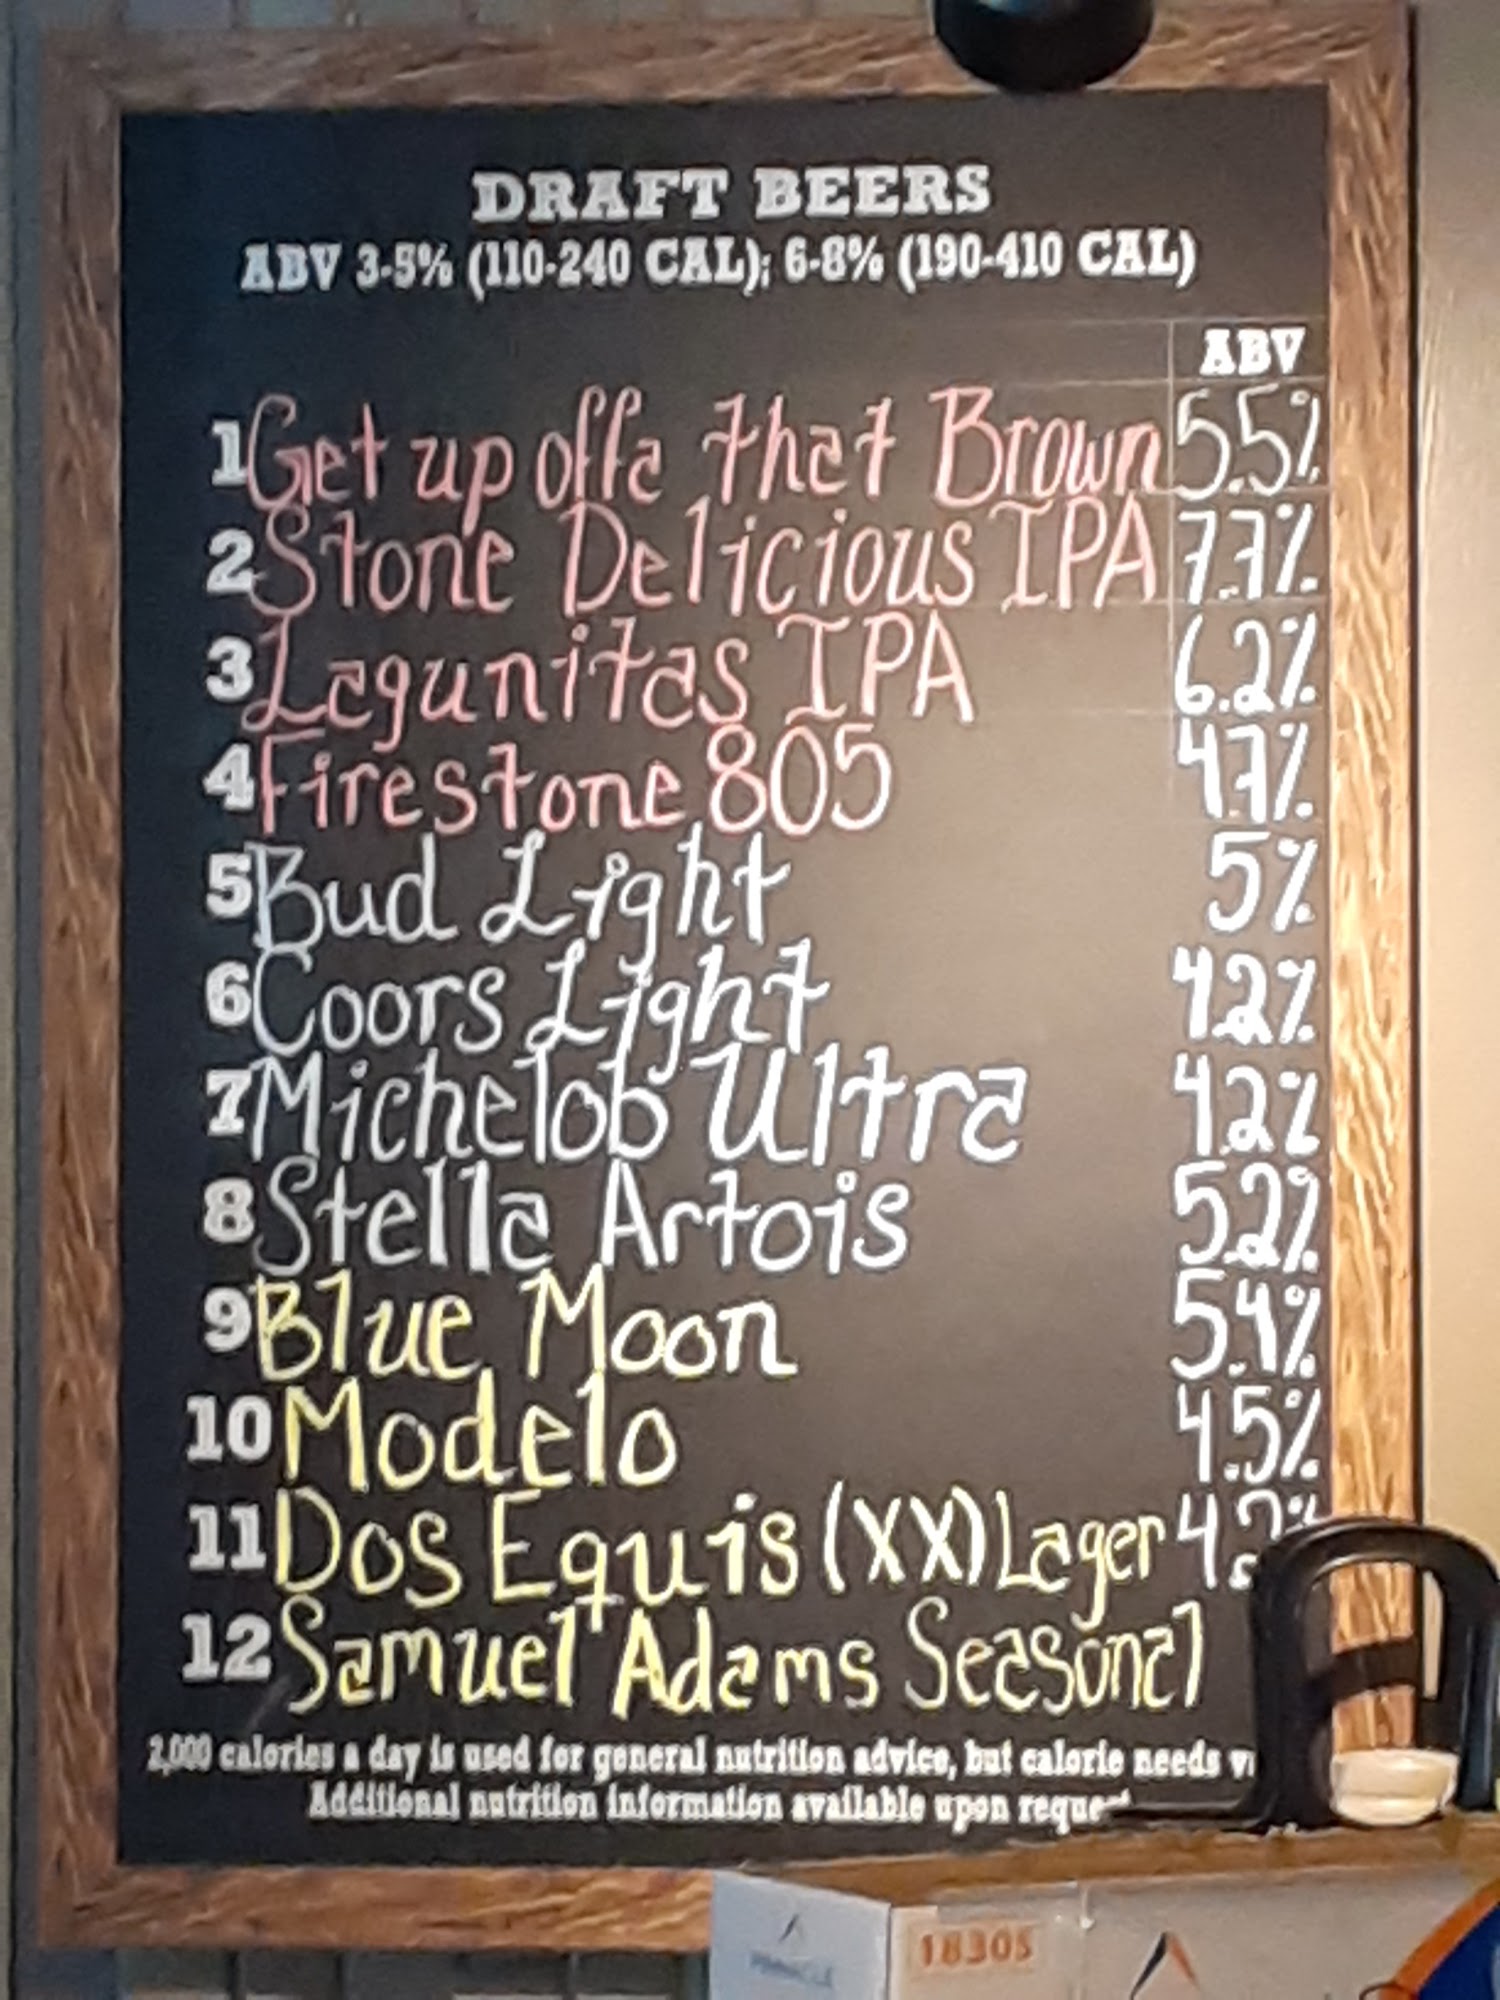 DRAFT BEERS
ABV 3-5% (110-240 CAL); 6-8% (190-410 CAL)
ABV
1 Get up offa that Brown 5.5%
2 Stone Delicious IPA 7.7%
3 Lagunitas IPA 6.2%
4 Firestone 805 4.7%
5 Bud Light 5%
6 Coors Light 4.2%
7 Michelob Ultra 4.2%
8 Stella Artois 5.2%
9 Blue Moon 5.4%
10 Modelo 4.5%
11 Dos Equis (XX) Lager 4.2%
12 Samuel Adams Seasonal
2,000 calories a day is used for general nutrition advice, but calorie needs
Additional nutrition information available upon request
PINNACLE
18305